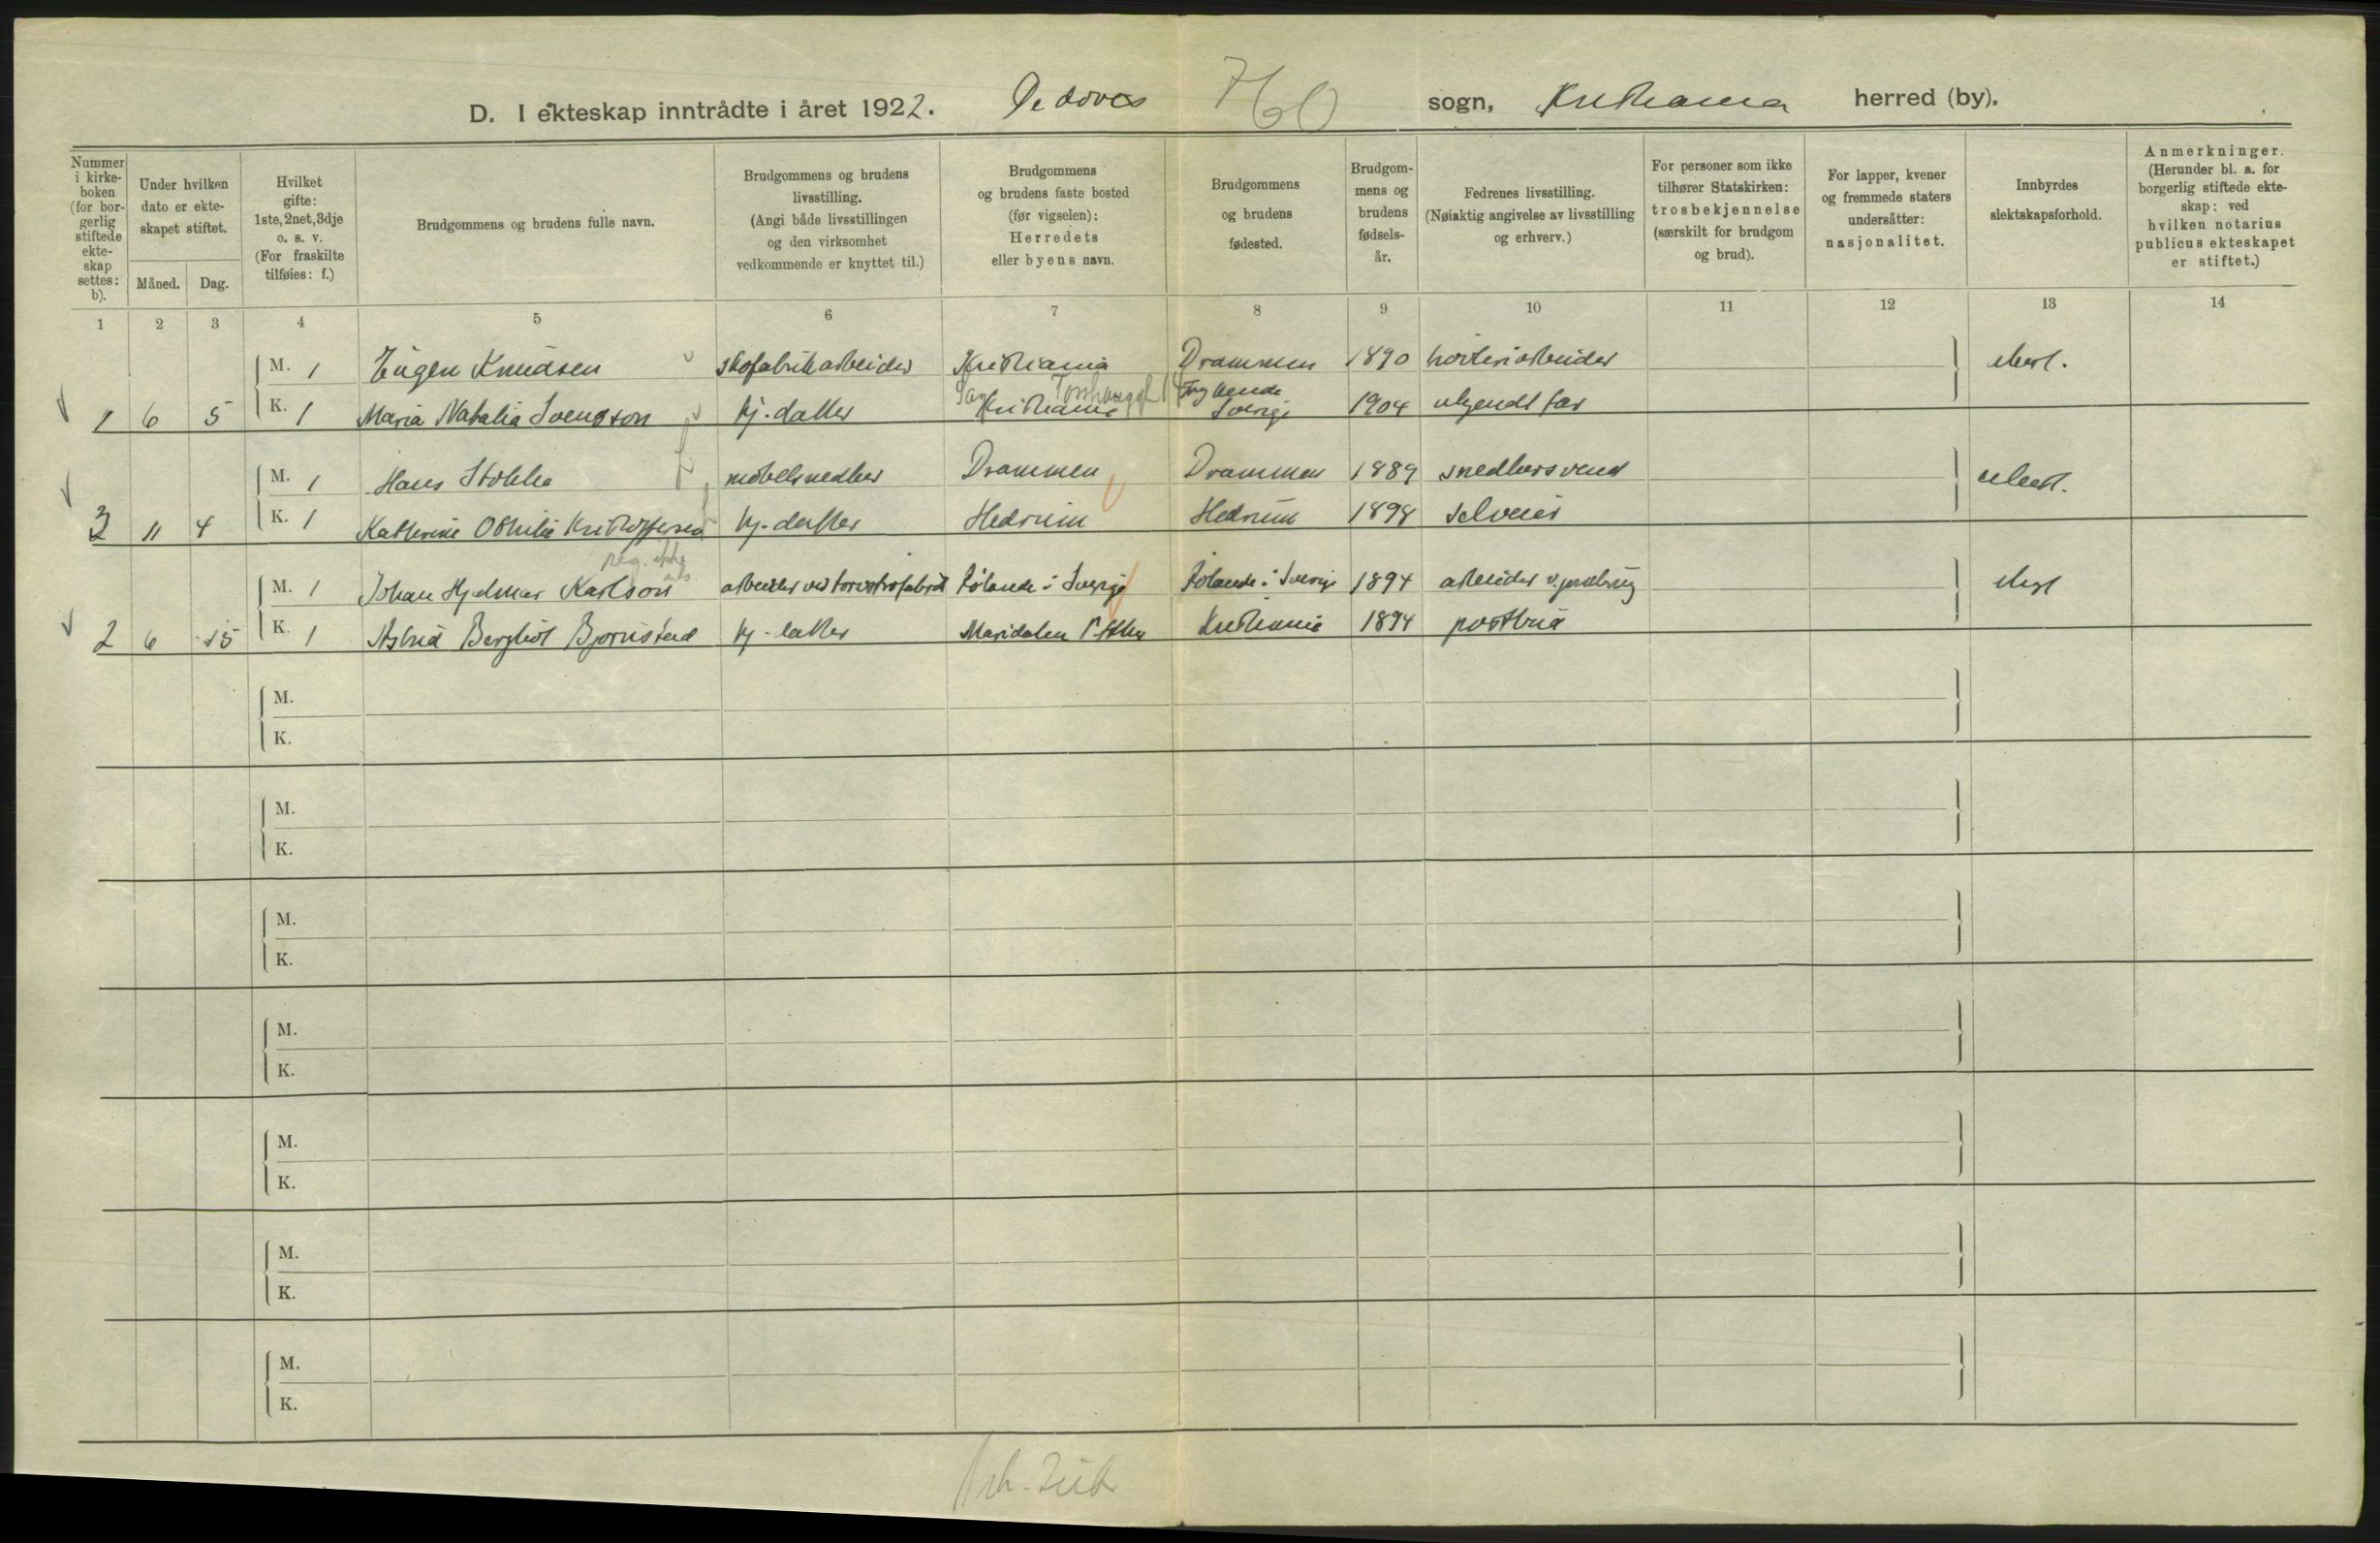 D. I ekteskap inntrådte i året 1922. De døves 760 sogn, Kristiania herred (by).
Nummer i kirkeboken (for borgerlig stiftede ekteskap settes: b).
Under hvilken dato er ekteskapet stiftet.
Måned. Dag.
Hvilket gifte: 1ste, 2net, 3dje o. s. v. (For fraskilte tilføies: f.)
Brudgommens og brudens fulle navn.
Brudgommens og brudens livsstilling. (Angi både livsstillingen og den virksomhet vedkommende er knyttet til.)
Brudgommens og brudens faste bosted (før vigselen): Herredets eller byens navn.
Brudgommens og brudens fødested.
Brudgommens og brudens fødselsår.
Fedrenes livsstilling. (Nøiaktig angivelse av livsstilling og erhverv.)
For personer som ikke tilhører Statskirken: trosbekjennelse (særskilt for brudgom og brud).
For lapper, kvener og fremmede staters undersåtter: nasjonalitet.
Innbyrdes slektskapsforhold.
Anmerkninger. (Herunder bl. a. for borgerlig stiftede ekteskap: ved hvilken notarius publicus ekteskapet er stiftet.)
1 2 3 4 5 6 7 8 9 10 11 12 13 14
M. 1 Eugen Knudsen skofabrikarbeider Kristiania Drammen 1890 arbeider ubesl.
1 6 5 K. 1 Maria Natalia Svensson hj. datter Kristiania Sverige 1904 ukjendt far
M. 1 Hans Stokke møbelsnedker Drammen Drammen 1889 snedkersvend ubesl.
3 11 4 K. 1 Kathrine Othilie Kristoffersen hj. datter Hedrum Hedrum 1898 selveier
M. 1 Johan Hjalmar Karlson arbeider ved torvstrøfabrik Rölanda i Sverige Rölanda i Sverige 1894 arbeider v. jordbrug ubesl
2 6 15 K. 1 Astrid Bergliot Bjørnstad hj. datter Maridalen V. Aker Kristiania 1894 postbud
M.
K.
M.
K.
M.
K.
M.
K.
M.
K.
M.
K.
M.
K.